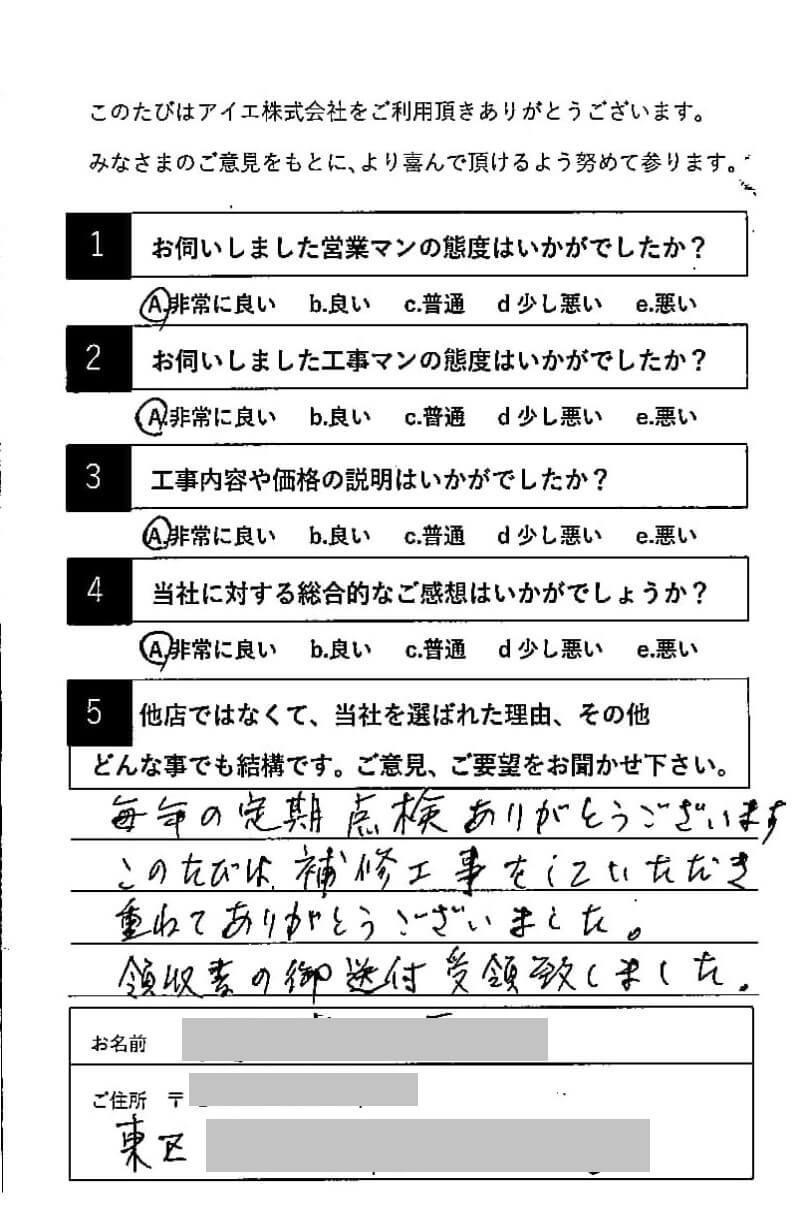 このたびはアイエ株式会社をご利用頂きありがとうございます。
みなさまのご意見をもとに、より喜んで頂けるよう努めて参ります。
1 お伺いしました営業マンの態度はいかがでしたか？
A.非常に良い b.良い c.普通 d 少し悪い e.悪い
2 お伺いしました工事マンの態度はいかがでしたか？
A.非常に良い b.良い c.普通 d 少し悪い e.悪い
3 工事内容や価格の説明はいかがでしたか？
A.非常に良い b.良い c.普通 d 少し悪い e.悪い
4 当社に対する総合的なご感想はいかがでしょうか？
A.非常に良い b.良い c.普通 d 少し悪い e.悪い
5 他店ではなくて、当社を選ばれた理由、その他
どんな事でも結構です。ご意見、ご要望をお聞かせ下さい。
毎年の定期点検ありがとうございます
このたびは、補修工事をしていただき
重ねてありがとうございました。
領収書の御送付受領致しました。
お名前
ご住所 〒
東区